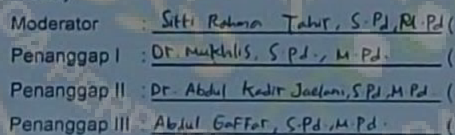 Moderator : Sitti Rahma Tahir, S.Pd, M.Pd (
Penanggap I : Dr. Mukhlis, S.Pd., M.Pd. (
Penanggap II : Dr. Abdul Kadir Jaelani, S.Pd, M.Pd. (
Penanggap III : Abdul Gaffar, S.Pd., M.Pd. (